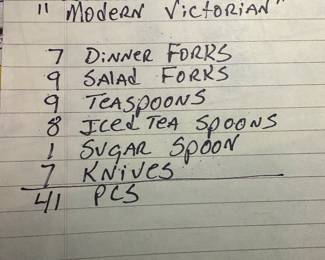 " Modern Victorian"
7 Dinner Forks
9 Salad Forks
9 Teaspoons
8 Iced Tea Spoons
1 Sugar Spoon
7 Knives
41 PCS